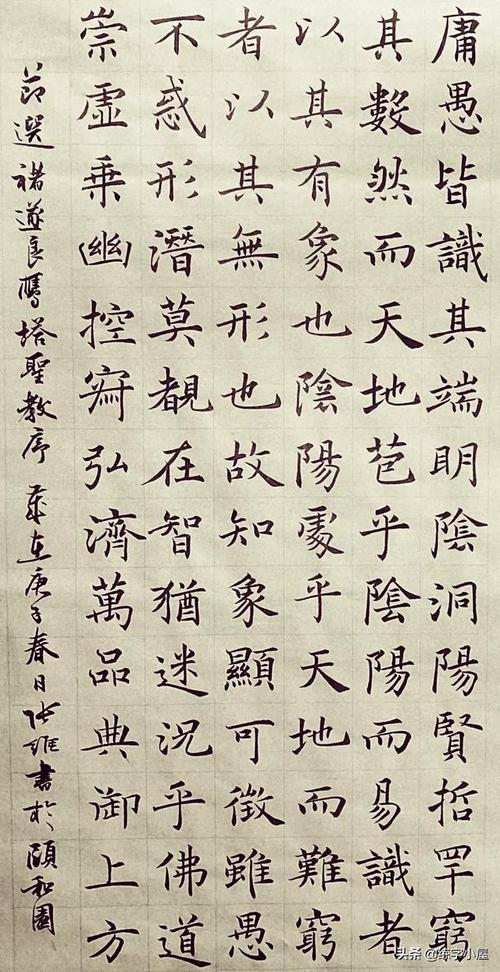 庸愚皆識其端明陰洞陽賢哲罕窮
其數然而天地苞乎陰陽而易識者
以其有象也陰陽處乎天地而難窮
者以其無形也故知象顯可徵雖愚
不惑形潛莫覩在智猶迷況乎佛道
崇虛乗幽控寂弘濟萬品典御上方
節選褚遂良雁塔聖教序歲在庚子春日張維書於頤和園
头条@练字小屋